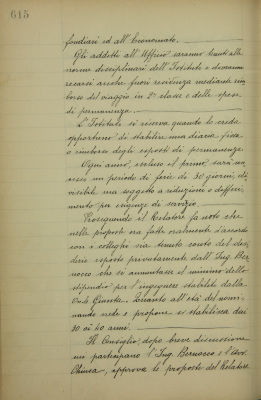 615
fondiari ed all'Economato.
Gli addetti all'Ufficio saranno tenuti alle
norme disciplinari dell'Istituto e dovranno
recarsi anche fuori residenza mediante rim
borso del viaggio in 2ª classe e delle spese
di permanenza.
L'Istituto si riserva quando lo crede
opportuno di stabilire una diaria fissa
o rimborso degli esposti di permanenza.
Ogni anno, escluso il primo, sarà con
cesso un periodo di ferie di 30 giorni, di
visibile ma soggetto a riduzioni o differi
mento per esigenze di servizio.
Proseguendo il Relatore fa noto che
nelle proposte ora fatte oralmente d'accordo
con i colleghi sia tenuto conto del desi
derio esposto privatamente dall'Ing. Ber
nocco che si aumentasse il minimo dello
stipendio per l'ingegnere stabilito dalla
Onle Giunta. Quanto all'età del nomi
nando crede e propone si stabilisca dai
30 ai 40 anni.
Il Consiglio, dopo breve discussione
cui partecipano l'Ing. Bernocco e l'Avv.
approva le proposte del Relatore